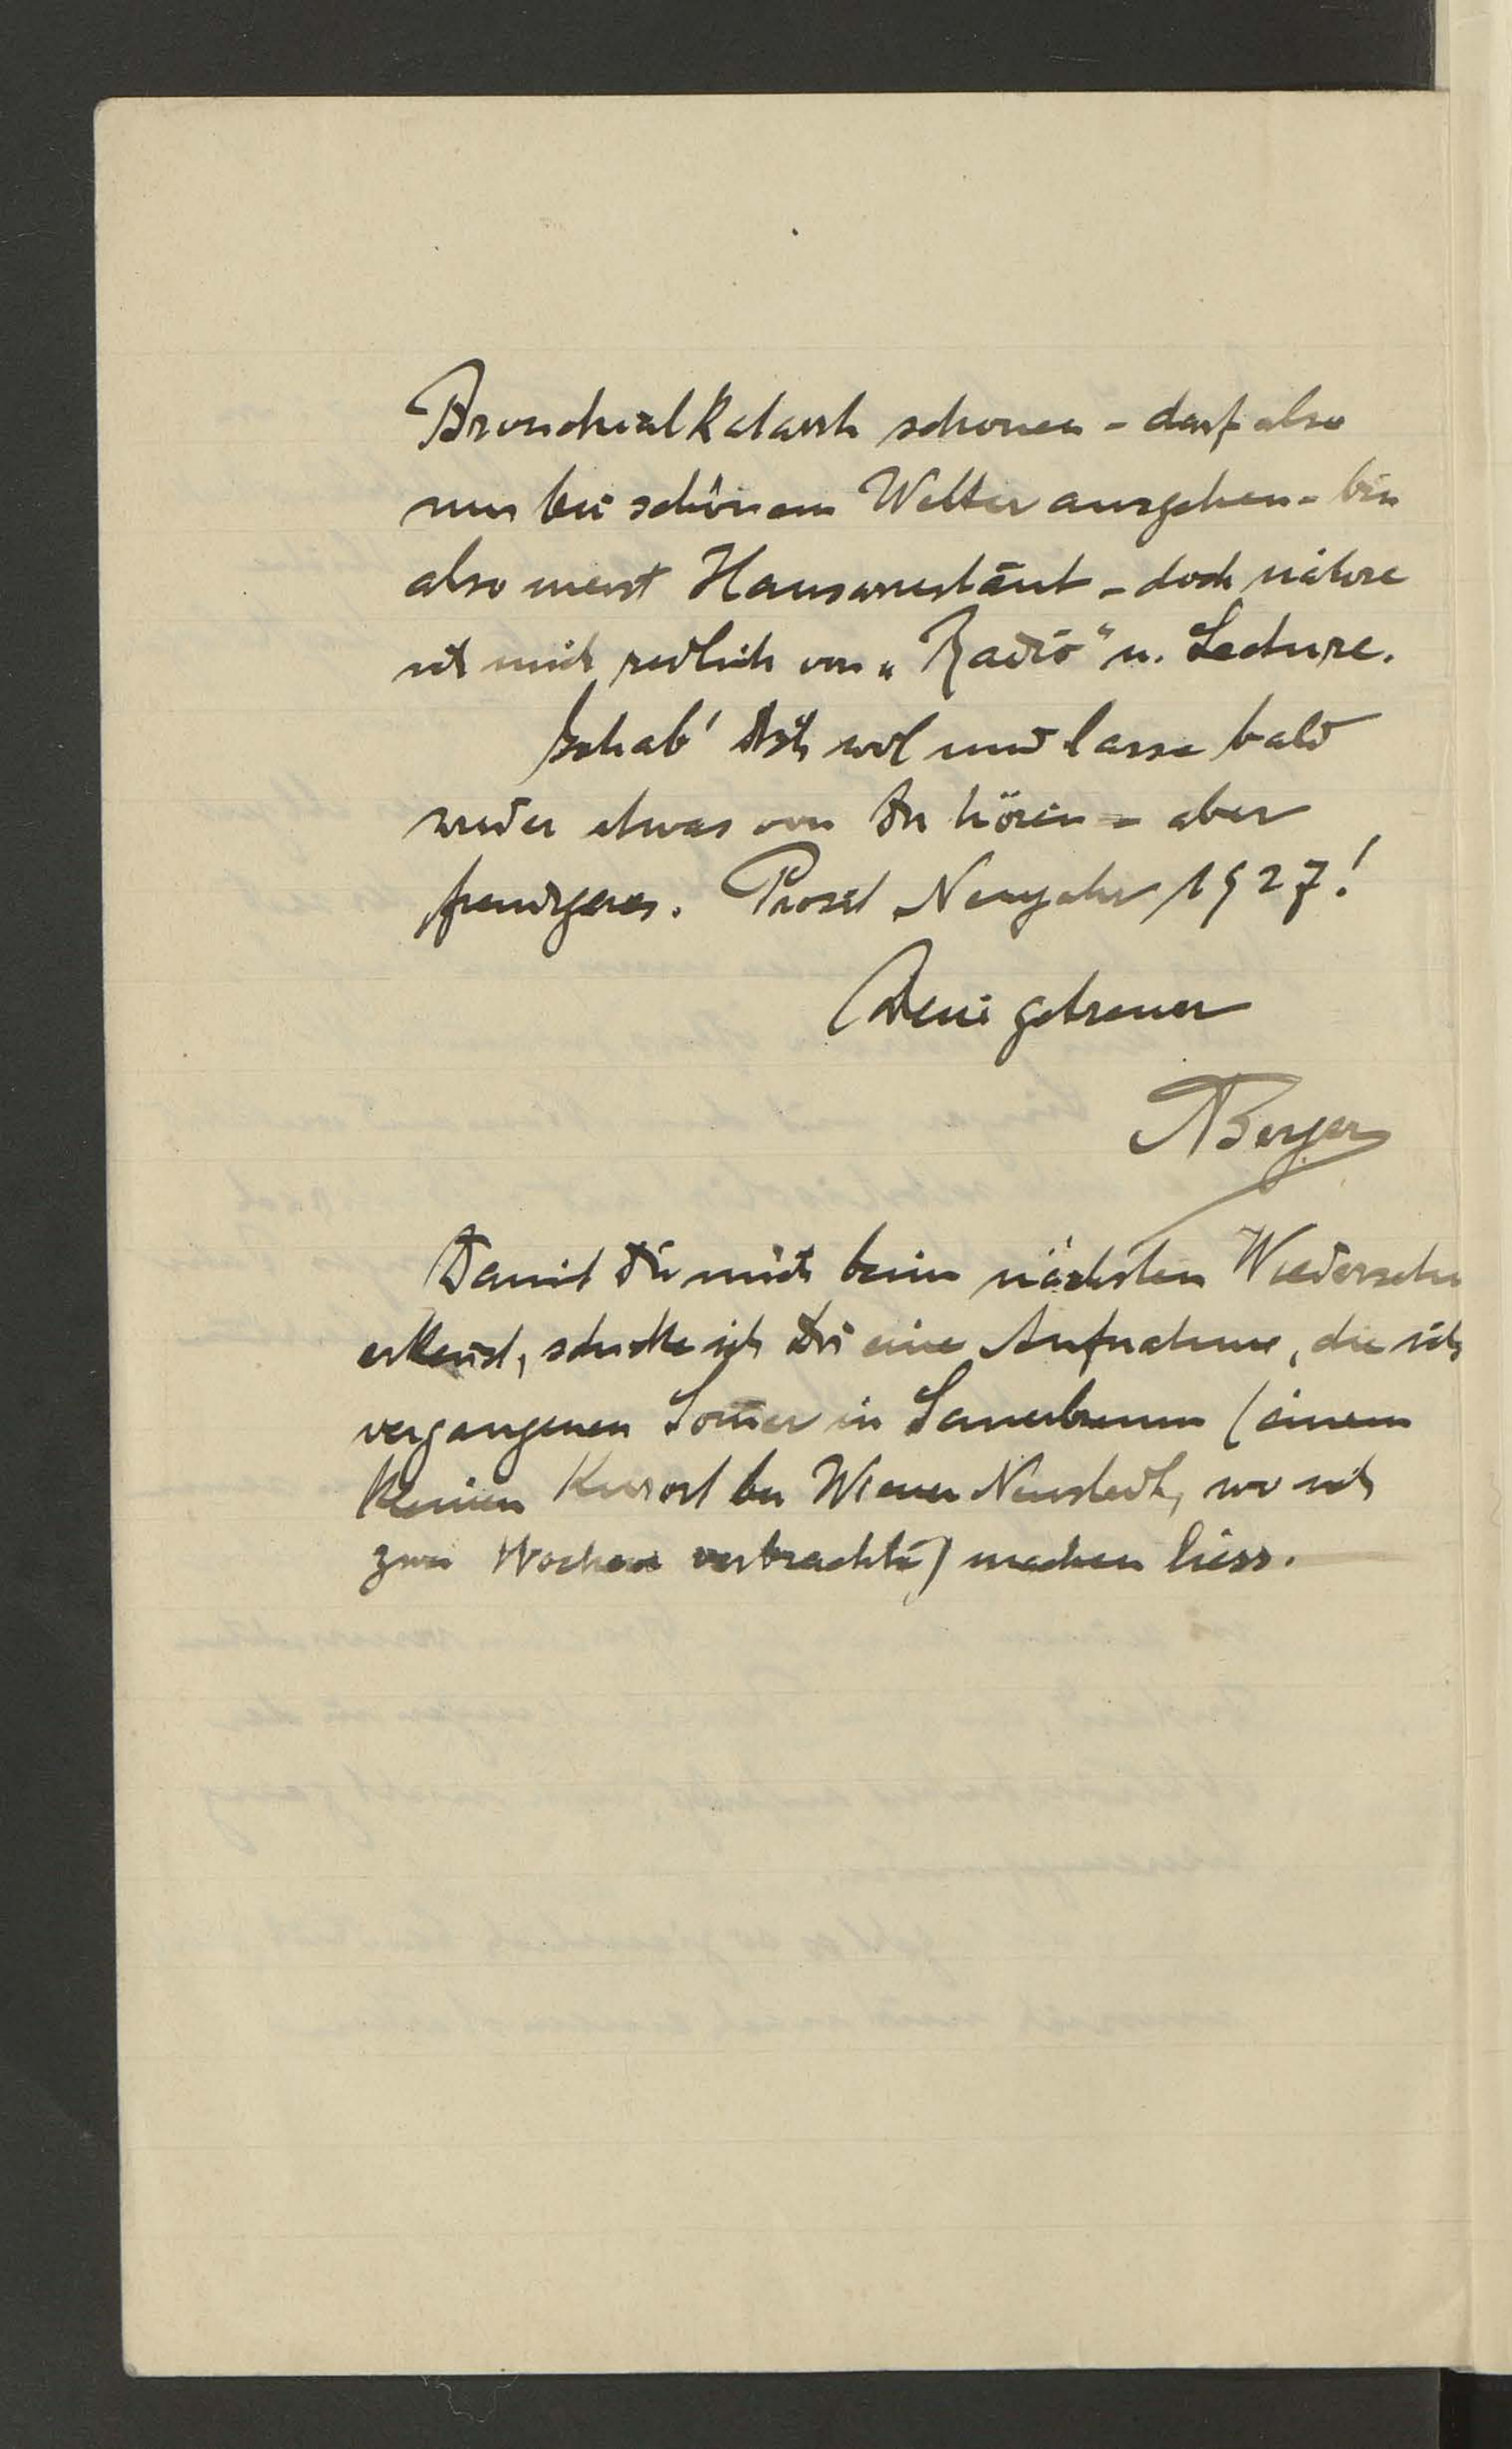 Bronchialkatarrh schonen – darf also
nur bei schönem Wetter ausgehen – bin
also meist Hausarrestant – doch nähre
ich mich redlich von „Radio“ u. Lecture.
Gehab' Dich wol und lasse bald
wieder etwas von Dir hören – aber
freudigeres. Prosit Neujahr 1927!
Dein getreuer
ABerger
Damit Du mich beim nächsten Wiedersehn
erkennst, schicke ich Dir eine Aufnahme, die ich
vergangenen Som̅er in Sauerbrunn (einem
kleinen Kurort bei Wiener Neustadt, wo ich
zwei Wochen verbrachte) machen liess.